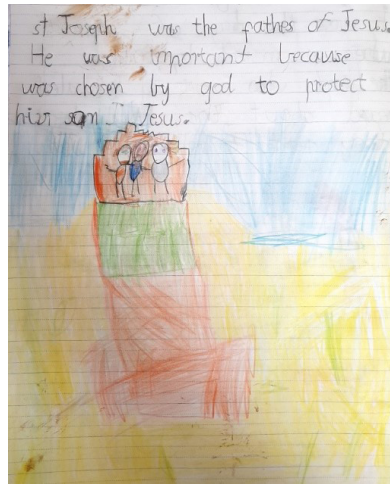 st Joseph was the fathes of Jesus.
He was important because
was chosen by god to protect
his son Jesus.